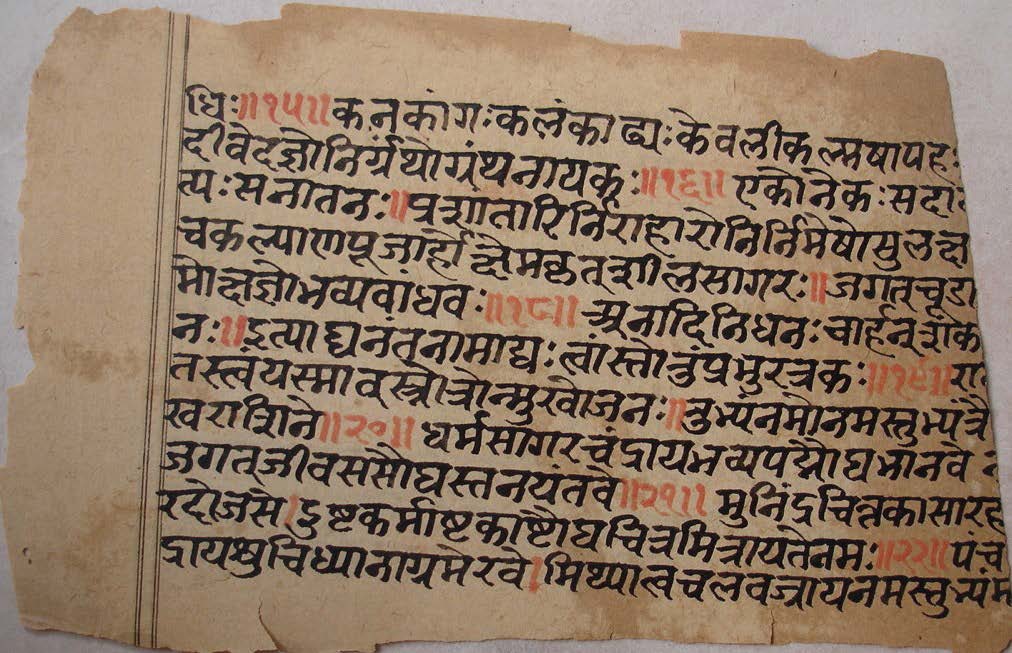 धिः॥१५॥कनकांगःकलंकाढ्यःकेवलीकल्मषापहः
दीवेदज्ञोनिर्ग्रंथोग्रंथनायकः॥१६॥ एकोनेकःसदान
त्यःसनातनः॥प्रशातारिर्निराहारोनिर्निमेषोसुलक्ष
चकल्याणपूजार्हो शीलसागरः॥जगत्चूडा
मोक्षज्ञोभव्यबांधवः॥१८॥ अनादिनिधनःचार्हन्
नः॥इत्याद्यनतनामाद्यः त्वांस्तोतुंप्रभुरत्रकः॥१९॥
तस्त्वंयस्माव् स्त्रोत्रोन्मुखोजनः॥तुभ्यंनमोनमस्तुभ्यं
खराशिने॥२०॥ धर्मसागरचंद्रायभव्यपद्मौघभानवे
जगत्जीवससौघस्तनयंतवे॥२१॥ मुनिंद्रचित्तकासार
रदोजसे।दुष्टकर्माष्टकाष्टौघचित्रमित्रायतेनमः॥२२॥पंचे
द्रायशुचिध्यानाग्रमेरवे।मिथ्यात्वचलवज्रायनमस्तुभ्यं